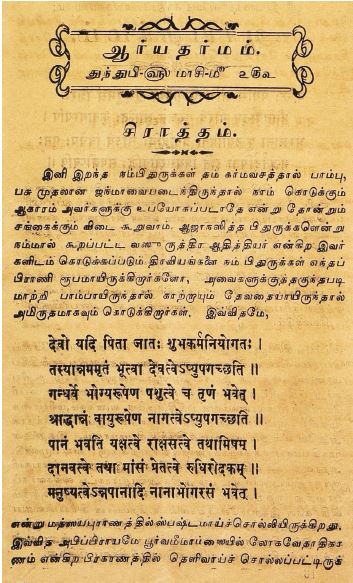 ஆர்யதர்மம்.
துந்துபி-௵ மாசி-௴ ௨௰௨
சிராத்தம்.
இனி இறந்த நம்பிதுருக்கள் தம் கர்மவசத்தால் பாம்பு,
பசு முதலான ஜன்மாவையடைந்திருந்தால் நாம் கொடுக்கும்
ஆகாரம் அவர்களுக்கு உபயோகப்படாதே என்று தோன்றும்
சங்கைக்கும் விடை கூறுவாம். ஆஜாநஸித்த பிதுருக்களென்று
நம்மால் கூறப்பட்ட வஸு ருத்திர ஆதித்தியர் என்கிற இவர்
களிடம் கொடுக்கப்படும் திரவியங்களை நம் பிதுருக்கள் எந்தப்
பிராணி ரூபமாயிருக்கிறார்களோ, அவைகளுக்குத்தகுந்தபடி
மாற்றி பாம்பாயிருந்தால் காற்றாயும் தேவதையாயிருந்தால்
அமிருதமாகவும் கொடுக்கிறார்கள். இவ்விதமே,
देवो यदि पिता जातः शुभकर्मनियोगतः ।
तस्यान्नममृतं भूत्वा देवत्वेऽप्युपगच्छति ॥
गन्धर्वे भोग्यरूपेण पशुत्वे च तृणं भवेत् ।
श्राद्धान्नं वायुरूपेण नागत्वेऽप्युपगच्छति ॥
पानं भवति यक्षत्वे राक्षसत्वे तथामिषम् ।
दानवत्वे तथा मांसं प्रेतत्वे रुधिरोदकम् ॥
मनुष्यत्वेऽन्नपानादि नानाभोगरसं भवेत् ।
என்று மத்ஸயபுராணத்தில் ஸ்பஷ்டமாய்ச்சொல்லியிருக்கிறது.
இவ்வித அபிப்பிராயமே பூர்வமீமாம்ஸையில் லோகவேதாதிகர
ணம் என்கிற பிரகரணத்தில் தெளிவாய்ச் சொல்லப்பட்டிருக்